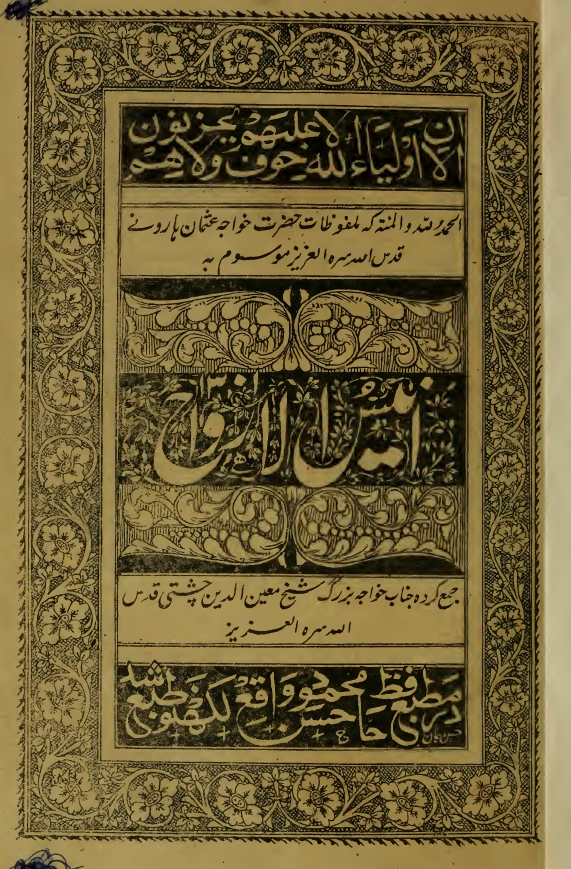 الا ان اولیاء الله لا خوف علیهم ولا هم یحزنون
الحمد لله والمنة که ملفوظات حضرت خواجه عثمان هارونے
قدس الله سره العزیز موسوم به
انیس الارواح
جمع کرده جناب خواجه بزرگ شیخ معین الدین چشتی قدس
الله سره العزیز
در مطبع محمدی واقع لکهنو طبع شد